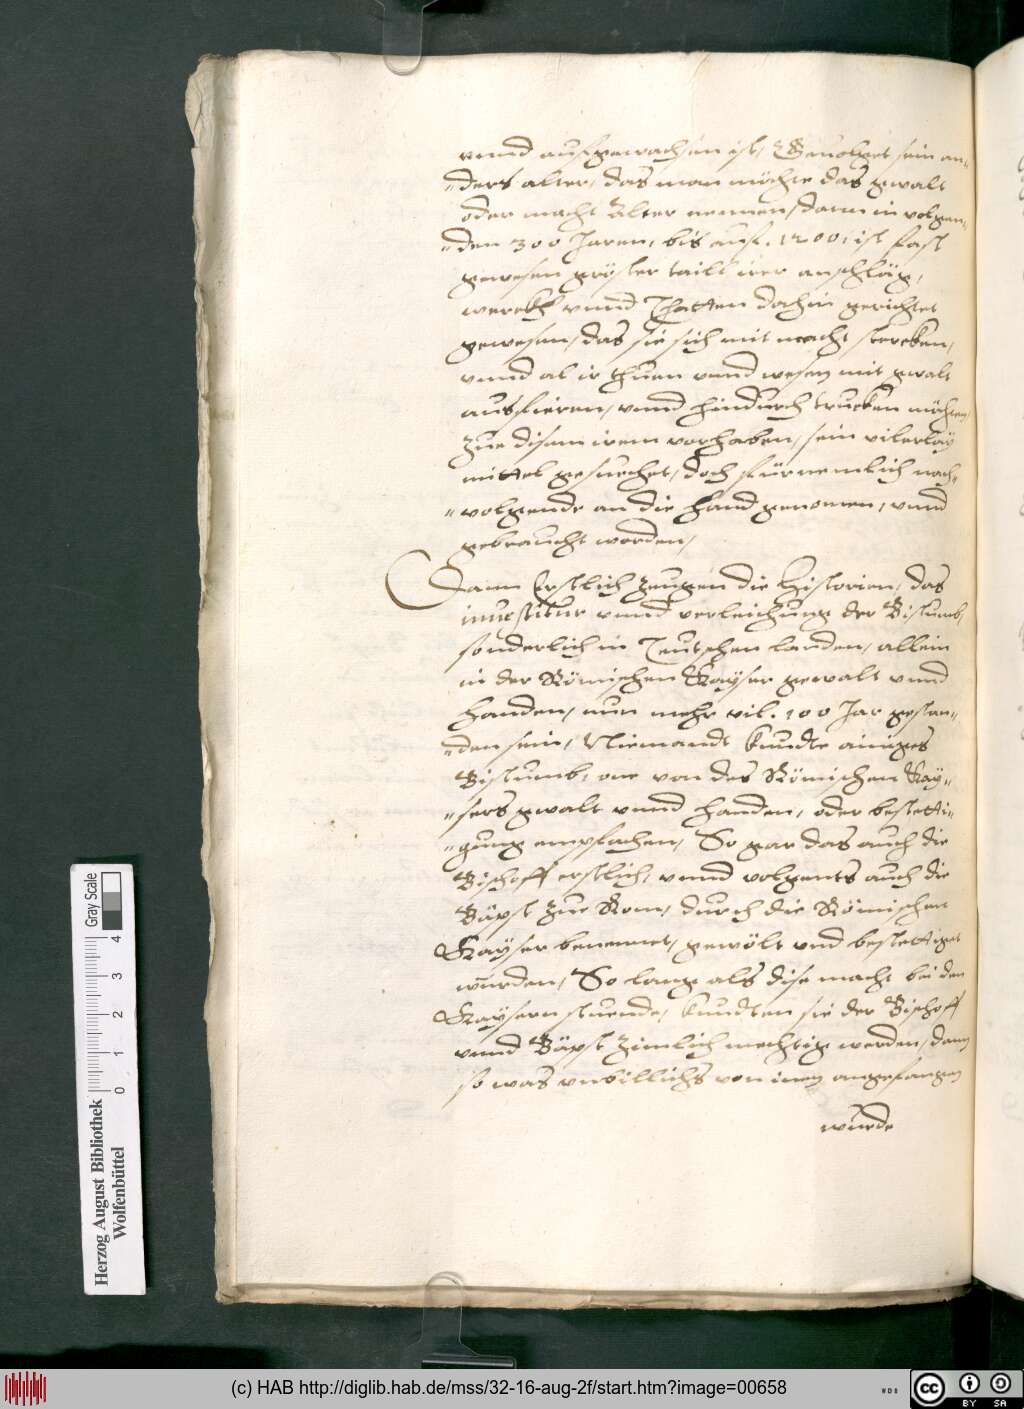 vnnd aufgewachsen ist, Geuolget sein an¬
¬ders alter, das man möchte das gwalt
oder macht Alter nennen, dann in volgen¬
¬den 300 Jaren, bis auf. 1200. ist fast
gewesen gröster taill irer anschläg,
werckh vnnd Thatten dahin gerichtet
gewesen, das sie sich mit macht stercken,
vnnd al ir thuen vnnd wesen mit gwalt
ausfieren, vnnd hindurch trucken möchten,
Zue disem irem vorhaben, sein vilerlay
mittel gesuechet, doch fürnemlich nach¬
¬volgende an die hand genomen, vnnd
gebraucht worden,
Dann Erstlich zeugen die Historien, das
inuestitur vnnd verleichung der Bistumb,
sonderlich in Teutschen landen, allein
in der Römischen Kayser gewalt vnnd
handen, nun mehr vil. 100 Jar gestan¬
¬den sein, Niemandt kundte ainiges
Bistumb, one von des Römischen Kay¬
¬sers gwalt vnnd handen, oder bestetti¬
¬gung empfachen, So gar das auch die
Bischoff erstlich, vnnd volgents auch die
Bäpst zue Rom, durch die Römischen
Kayser benennet, gewölt vnd bestettiget
wurden, So lang als dise macht bei den
Kaysern stuende, kundten sie der Bischoff
vnnd Bäpst zimlich mechtig werden, dann
so was vnbillichs von inen angefangen
wurde
Herzog August Bibliothek
Wolfenbüttel
Gray Scale
0 1 2 3 4
(c) HAB http://diglib.hab.de/mss/32-16-aug-2f/start.htm?image=00658
WDB
cc BY SA